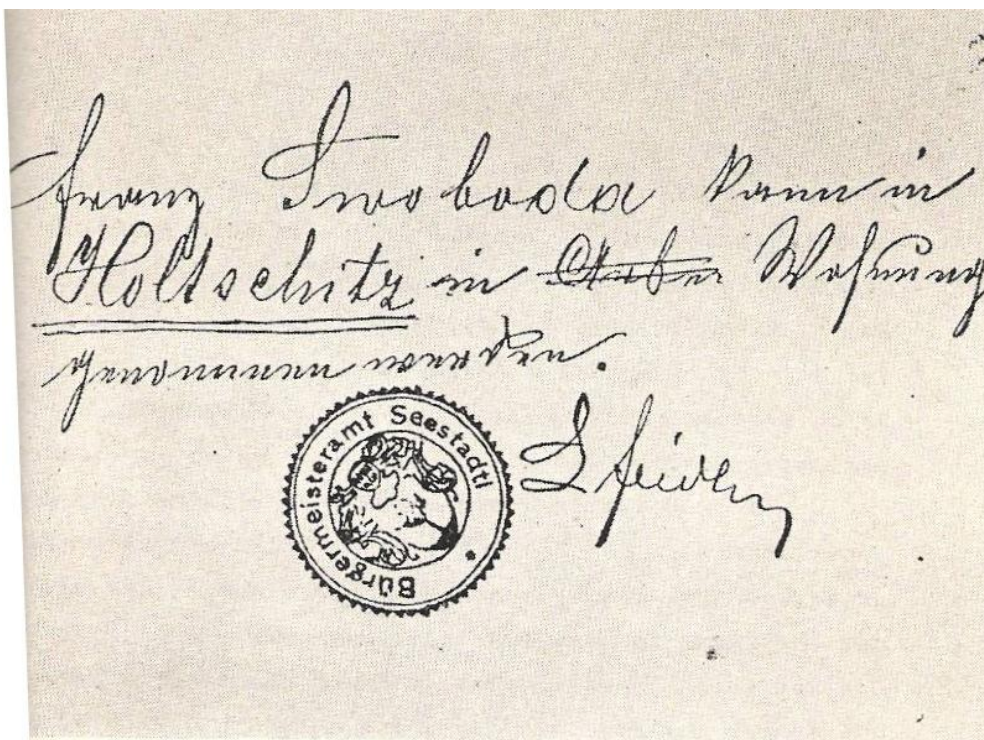 Franz Swoboda kann in
Holtschitz in Arbei Wohnung
genommen werden.
Bürgermeisteramt Seestadtl